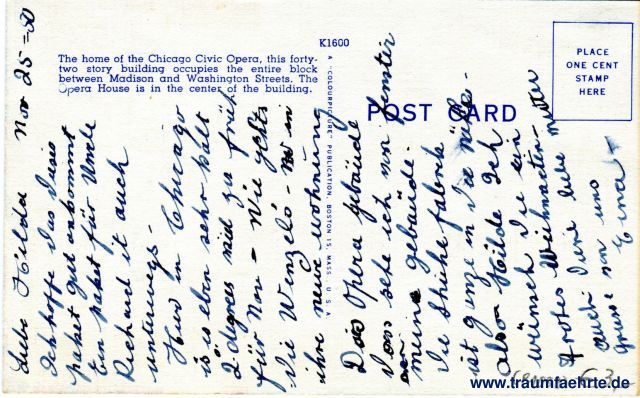 K1600
The home of the Chicago Civic Opera, this forty-
two story building occupies the entire block
between Madison and Washington Streets. The
Opera House is in the center of the building.
POST CARD
PLACE
ONE CENT
STAMP
HERE
A "COLOURPICTURE" PUBLICATION, BOSTON 15, MASS., U. S. A.
Liebe Hilda Nov 25=50
Ich hoffe das dieses
paket gut ankommt
Ein paket für Uncle
Richard it auch
unterwegs -
Hier in Chicago
is es eben sehr kalt
2 degrees mid zu früh
für Nov - Wie gehts
Die Wenzels - in
ihre neue wohnung
Das Opera gebäude
Das sehe ich vom fenster
meine gebäude.
Die Schuhe fabrik
ist ganze in die nähe -
also Hilde Ich
wünsch Dir ein
Frohes Weihnachten -
auch Deine liebe mutter
grüsse von uns
www.traumfaehrte.de